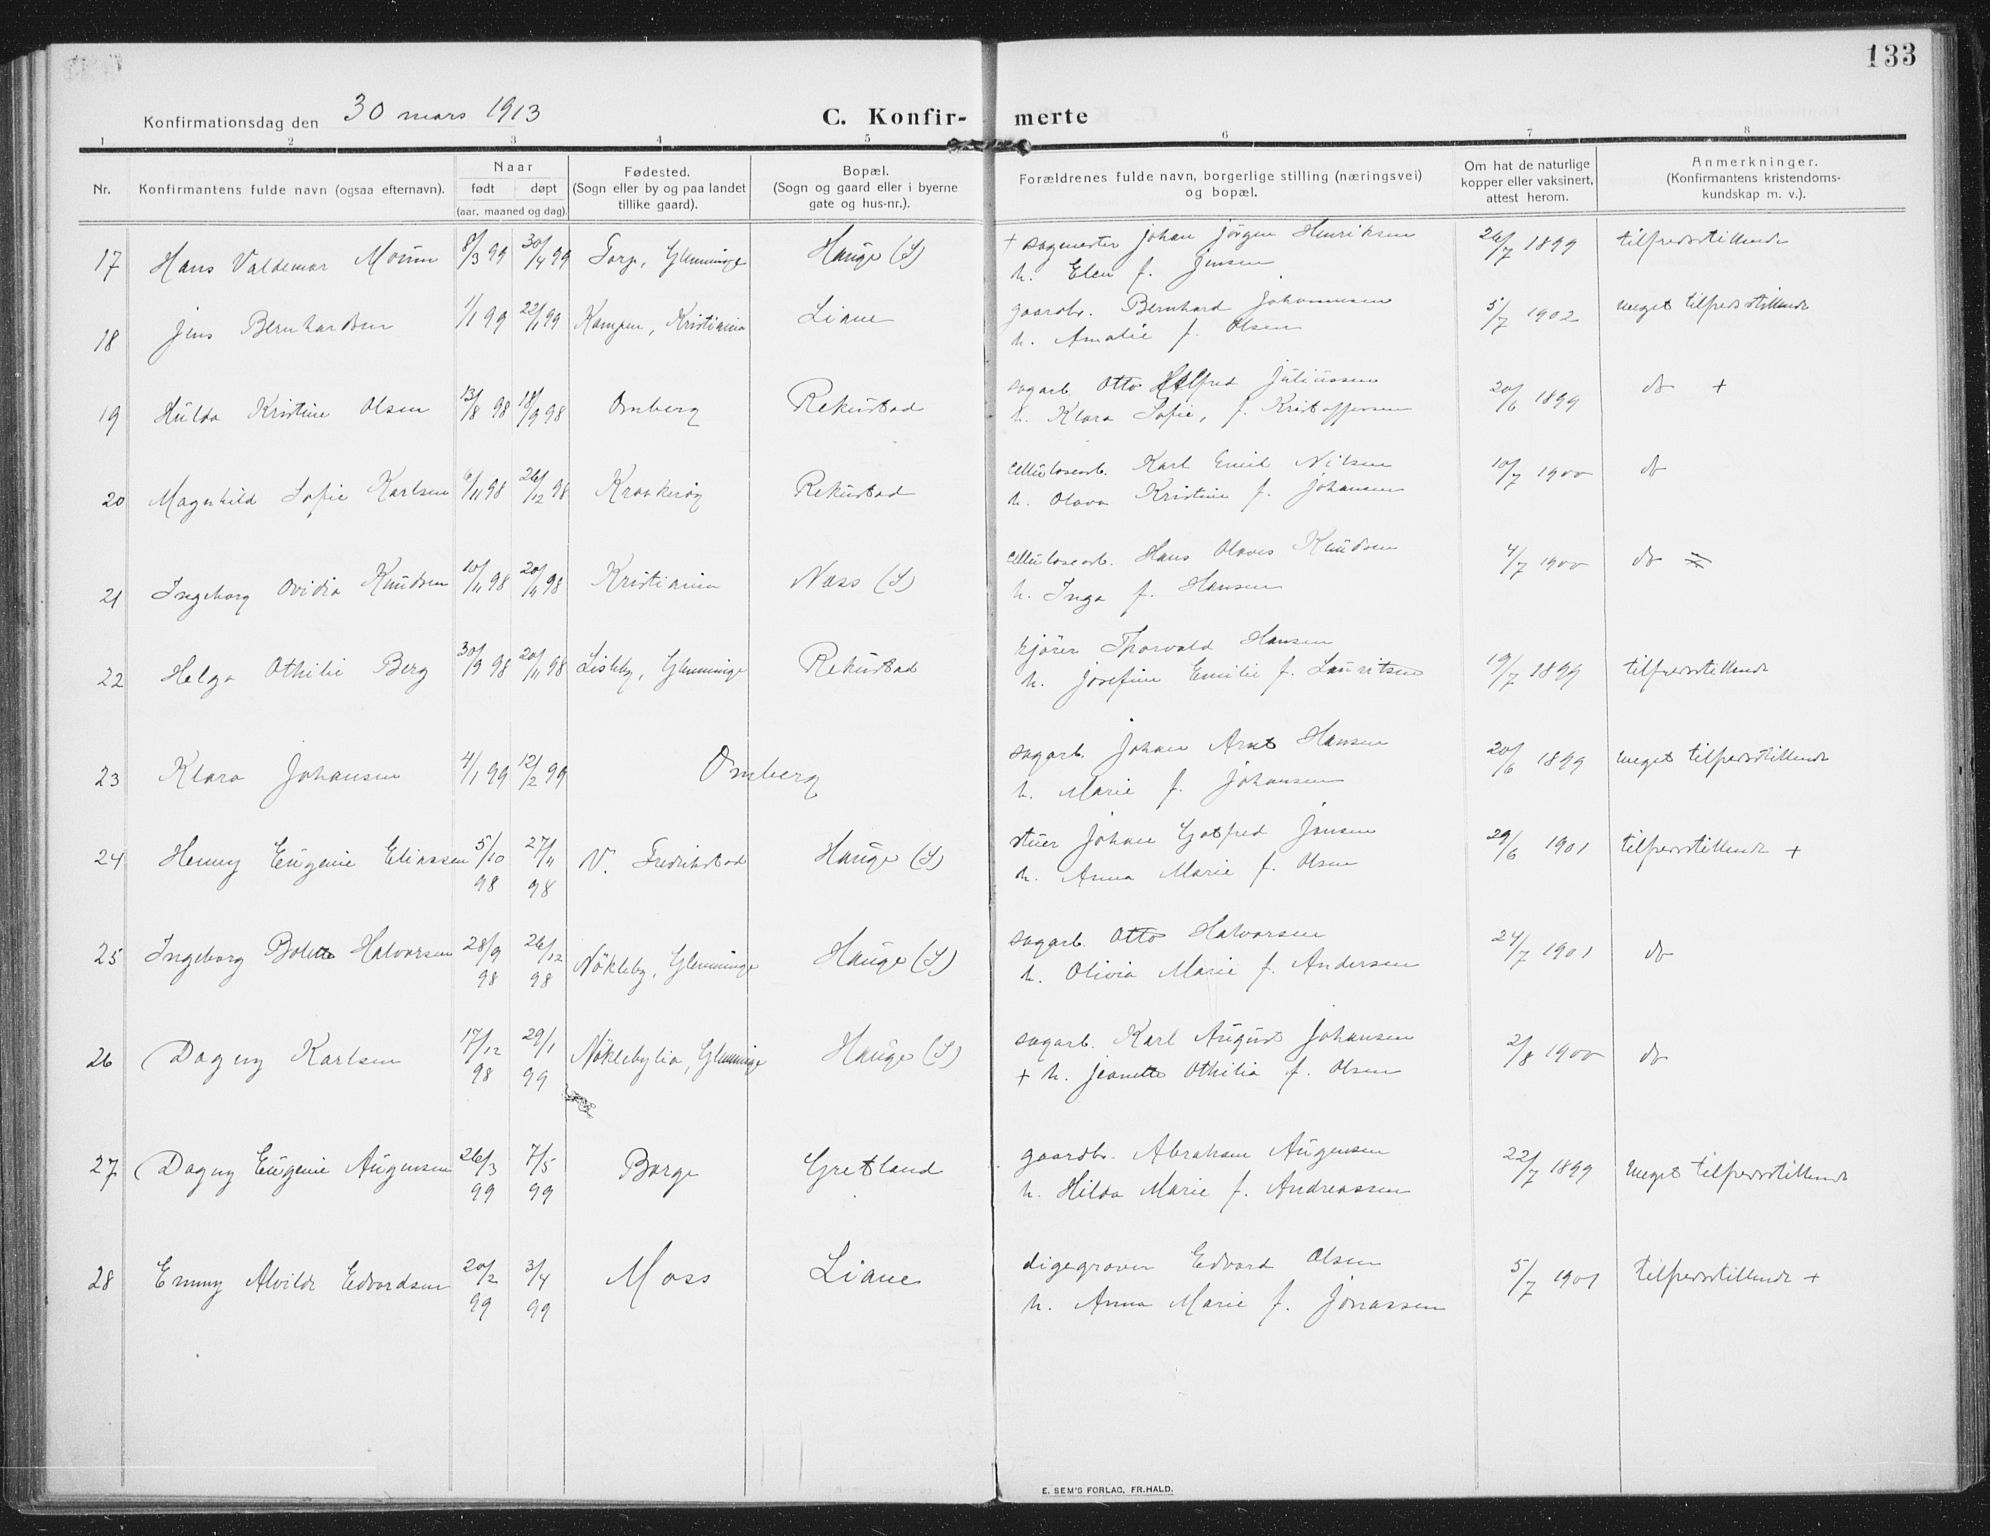 133
Konfirmationsdag den 30 mars 1913 C. Konfir- merte
1 2 3 4 5 6 7 8
Nr. Konfirmantens fulde navn (ogsaa efternavn). Naar født døpt (aar, maaned og dag). Fødested. (Sogn eller by og paa landet tillike gaard). Bopæl. (Sogn og gaard eller i byerne gate og hus-nr.). Forældrenes fulde navn, borgerlige stilling (næringsvei) og bopæl. Om hat de naturlige kopper eller vaksinert, attest herom. Anmerkninger. (Konfirmantens kristendoms- kundskap m. v.).
17 Hans Valdemar Moum 8/3 99 30/4 99 Torp, Glemminge Hauge (S) + sagmester Johan Jörgen Henriksen 26/7 1899 tilfredsstillende
h. Elen f. Jensen
18 Jens Bernhardsen 1/1 99 22/1 99 Kampen, Kristiania Liane gaardbr. Bernhard Johannesen 5/7 1902 meget tilfredsstillende
h. Amalie f. Olsen
19 Hulda Kristine Olsen 13/8 98 18/9 98 Omberg Rekustad sagarb. Otto Juliussen 20/6 1899 do +
h. Klara Sofie, f. Kristoffersen
20 Magnhild Sofie Karlsen 6/11 98 26/12 98 Kraakeröy Rekustad cellulosearb. Karl Emil Nilsen 10/7 1900 do
h. Olava Kristine f. Johansen
21 Ingeborg Ovidia Knudsen 10/11 98 20/11 98 Kristiania Næss (S) cellulosearb. Hans Olaves Knudsen 4/7 1900 do
h. Inga f. Hansen
22 Helga Othilie Berg 30/9 98 20/11 98 Lisleby, Glemminge Rekustad kjörer Thorvald Hansen 19/7 1899 tilfredsstillende
h. Josefine Emilie f. Lauritsen
23 Klara Johansen 4/1 99 12/2 99 Omberg sagarb. Johan Arnt Hansen 20/6 1899 meget tilfredsstillende
h. Marie f. Johansen
24 Henny Eugenie Eliassen 5/10 98 27/11 98 V. Fredrikstad Hauge (S) stuer Johan Gotfred Jensen 29/6 1901 tilfredsstillende +
h. Anna Marie f. Olsen
25 Ingeborg Bolette Halvorsen 28/9 98 26/12 98 Nökleby, Glemminge Hauge (S) sagarb. Otto Halvorsen 24/7 1901 do
h. Olivia Marie f. Andersen
26 Dagny Karlsen 17/12 98 29/1 99 Nöklebylia, Glemminge Hauge (S) sagarb. Karl August Johansen 2/8 1900 do
+ h. Jeanette Othilia f. Olsen
27 Dagny Eugenie Augensen 26/3 99 7/5 99 Borge Gretland gaardbr. Abraham Augensen 22/7 1899 meget tilfredsstillende
h. Hilda Marie f. Andreassen
28 Emmy Alvilde Edvardsen 20/2 99 3/4 99 Moss Liane digegraver Edvard Olsen 5/7 1901 tilfredsstillende +
h. Anna Marie f. Jonassen
E. SEM'S FORLAG, FR.HALD.